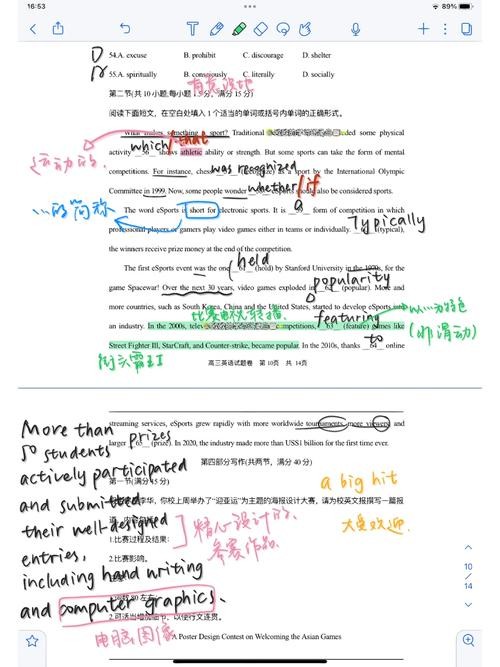 16:53
89%
54.A. excuse B. prohibit C. discourage D. shelter
D
55.A. spiritually B. consciously C. literally D. socially
有意识地
第二节(共10小题;每小题1.5分，满分15分)
阅读下面短文，在空白处填入1个适当的单词或括号内单词的正确形式。
What makes something a sport? Traditional some physical
which/that
运动的
activity 56 shows athletic ability or strength. But some sports can take the form of mental
was recognized
competitions. For instance, chess as a sport by the International Olympic
whether/if
Committee in 1999. Now, some people wonder eSports should also be considered sports.
...的简称
The word eSports is short for electronic sports. It is a form of competition in which
professional players or gamers play video games either in teams or individually. (typical),
Typically
the winners receive prize money at the end of the competition.
held
The first eSports event was the one 61 (hold) by Stanford University in the 1970s, for the
popularity
game Spacewar! Over the next 30 years, video games exploded in 62 (popular). More and
more countries, such as South Korea, China and the United States, started to develop eSports into
比赛电视转播
featuring
以...为特色
an industry. In the 2000s, competitions, 63 (feature) games like
to
Street Fighter III, StarCraft, and Counter-strike, became popular. In the 2010s, thanks 64 online
街头霸王
高三英语试题卷 第10页 共14页
streaming services, eSports grew rapidly with more worldwide tournaments, more viewers and
prizes
larger 65 (prize). In 2020, the industry made more than US$1 billion for the first time ever.
第四部分写作(共两节，满分40分)
第一节(满分15分)
a big hit
大受欢迎
李华，你校上周举办了“迎亚运”为主题的海报设计大赛，请为校英文报撰写一篇报
1.比赛过程及结果;
2.比赛影响。
精心设计的
参赛作品
80左右;
2.可适当增加细节，以使行文连贯。
A Poster Design Contest on Welcoming the Asian Games
More than
50 students
actively participated
and submitted
their well-designed
entries,
including hand writing
and computer graphics.
电脑图像
10
14